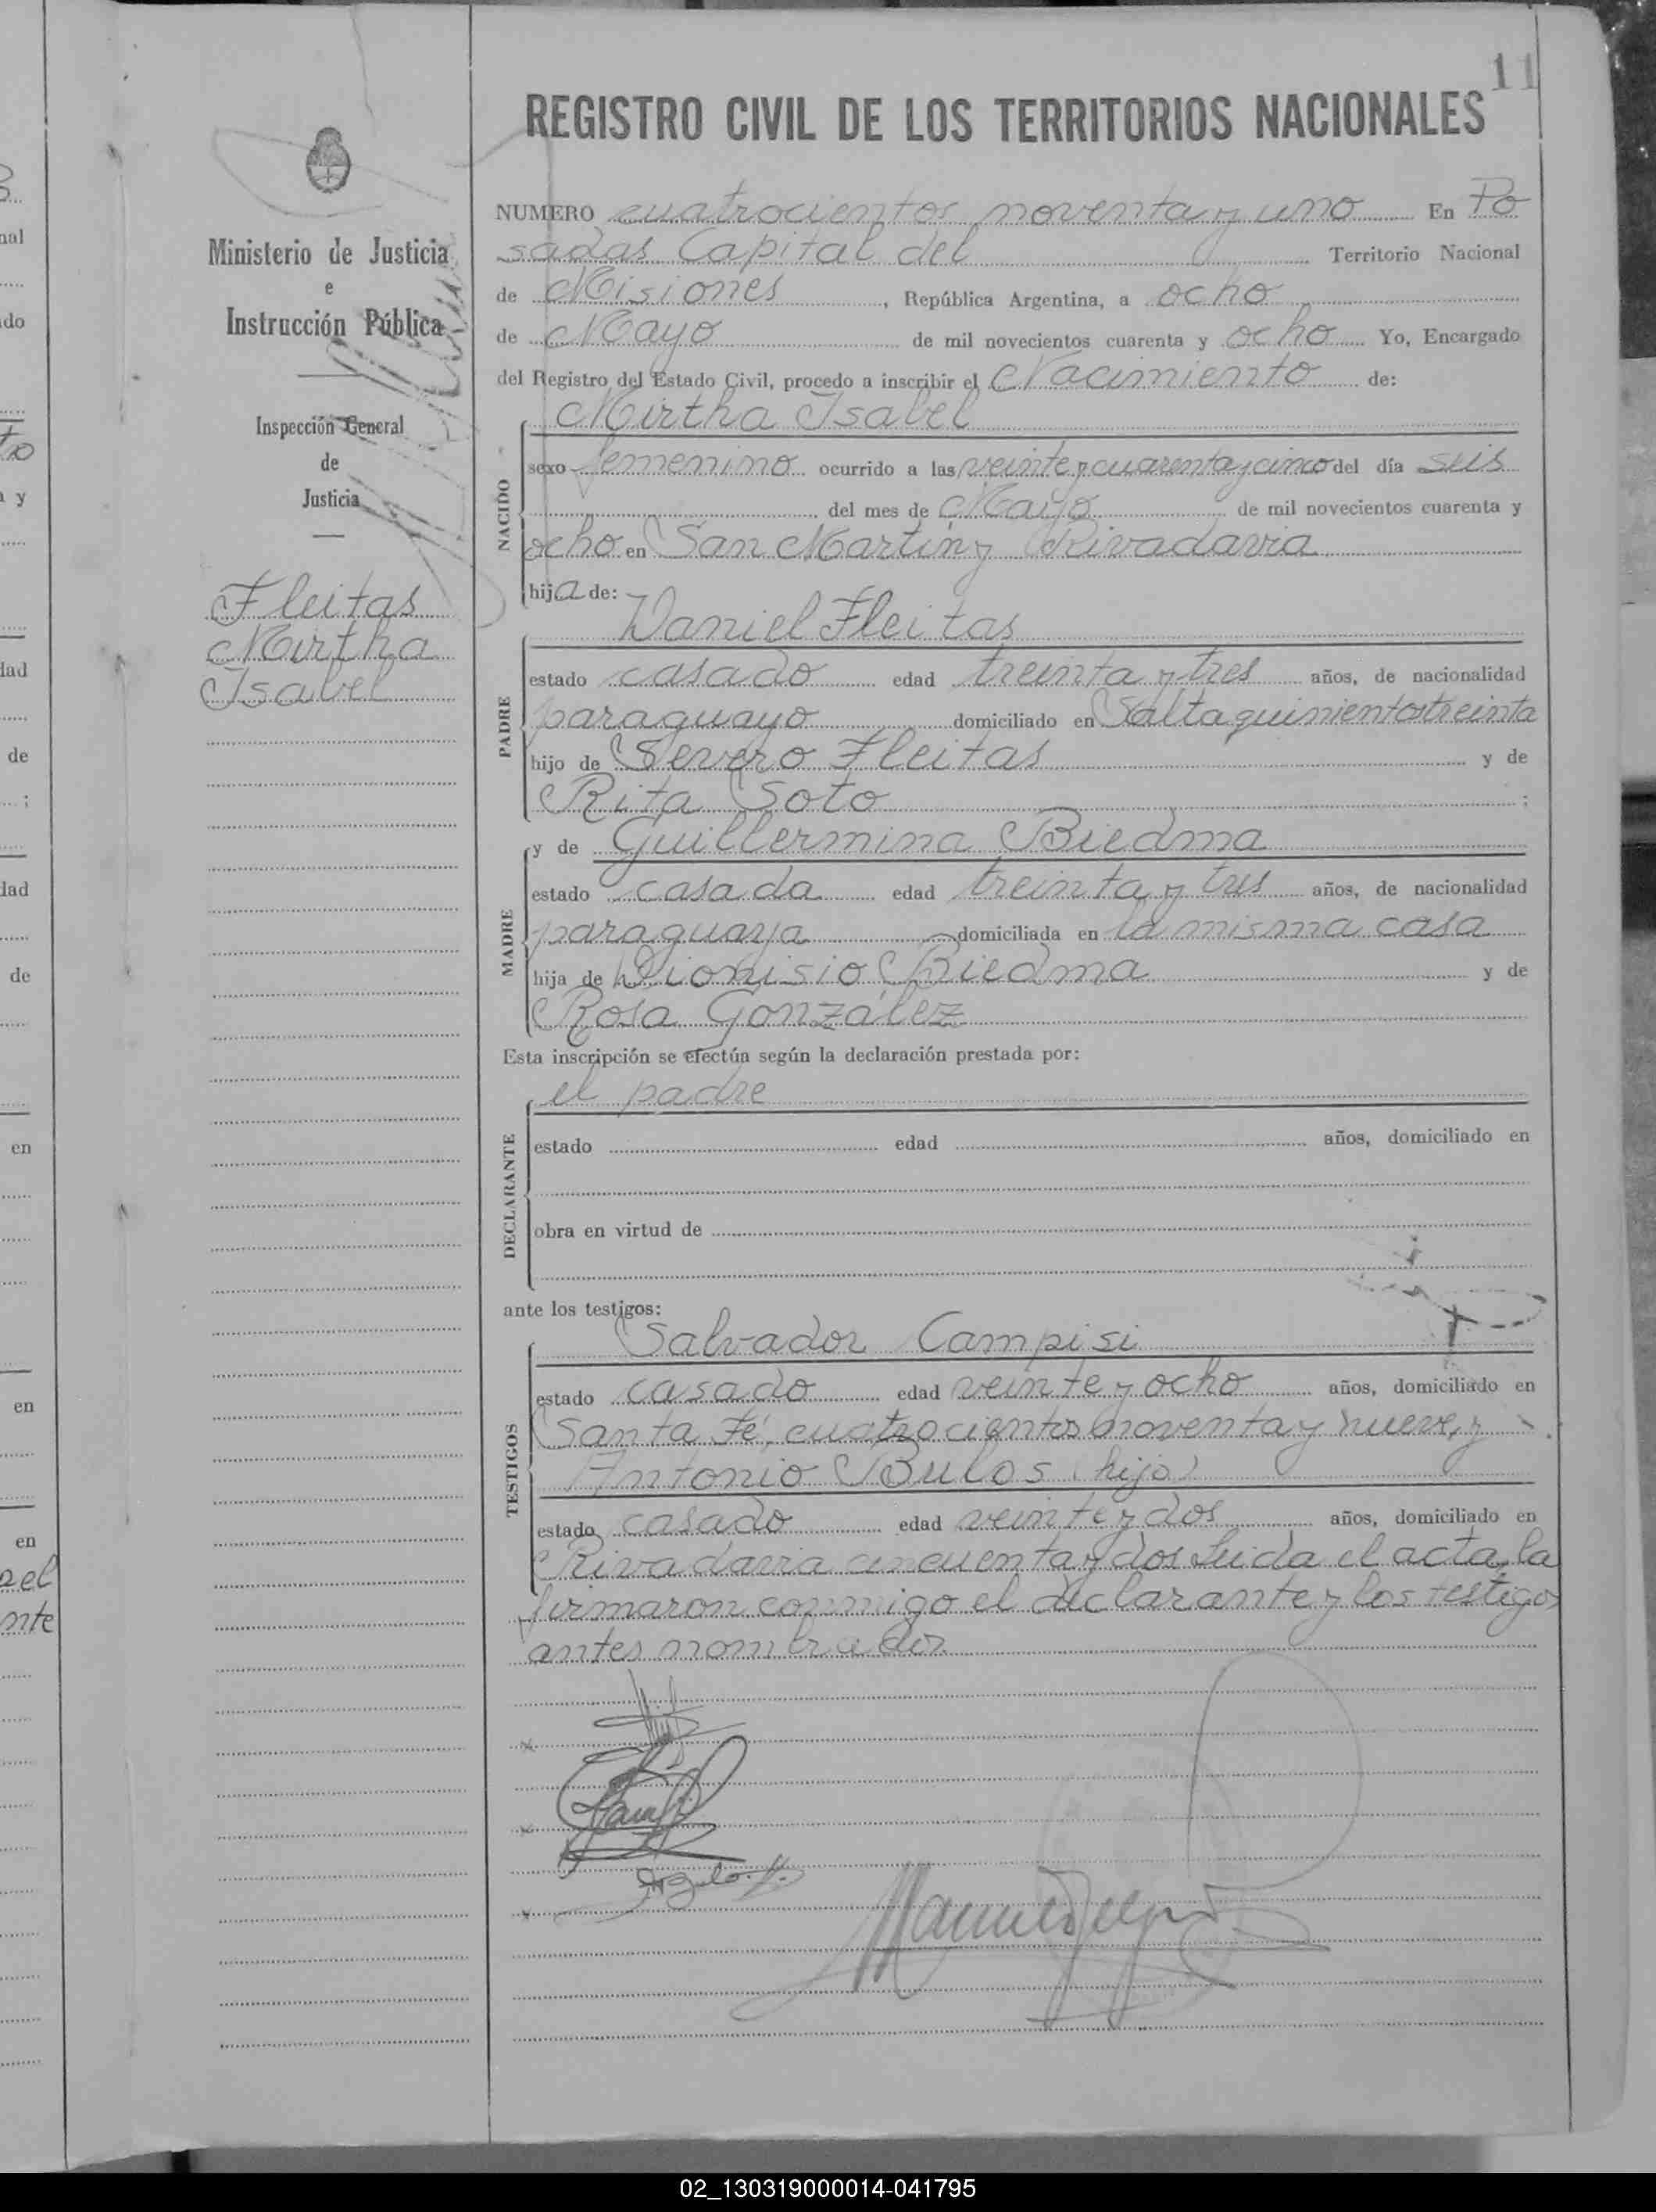 11
REGISTRO CIVIL DE LOS TERRITORIOS NACIONALES
Ministerio de Justicia
e
Instrucción Pública
Inspección General
de
Justicia
Fleitas
Mirtha
Isabel
NUMERO cuatrocientos noventa y uno En Po
sadas Capital del Territorio Nacional
de Misiones, República Argentina, a ocho
de Mayo de mil novecientos cuarenta y ocho Yo, Encargado
del Registro del Estado Civil, procedo a inscribir el Nacimiento de:
NACIDO
Mirtha Isabel
sexo femenino ocurrido a las veinte y cuarenta y cinco del día seis
del mes de Mayo de mil novecientos cuarenta y
ocho en San Martín y Rivadavia
hija de:
PADRE
Daniel Fleitas
estado casado edad treinta y tres años, de nacionalidad
paraguayo domiciliado en Salta quinientos treinta
hijo de Severo Fleitas y de
Rita Soto ;
MADRE
y de Guillermina Biedma
estado casada edad treinta y tres años, de nacionalidad
paraguaya domiciliada en la misma casa
hija de Dionisio Biedma y de
Rosa González
Esta inscripción se efectúa según la declaración prestada por:
DECLARANTE
el padre
estado edad años, domiciliado en
obra en virtud de
ante los testigos:
TESTIGOS
Salvador Campisi
estado casado edad veinte y ocho años, domiciliado en
Santa Fé, cuatrocientos noventa y nueve, y
Antonio Bulos (hijo)
estado casado edad veinte y dos años, domiciliado en
Rivadavia cincuenta y dos Leida el acta, la
firmaron conmigo el declarante y los testigos
antes nombrados
02_130319000014-041795